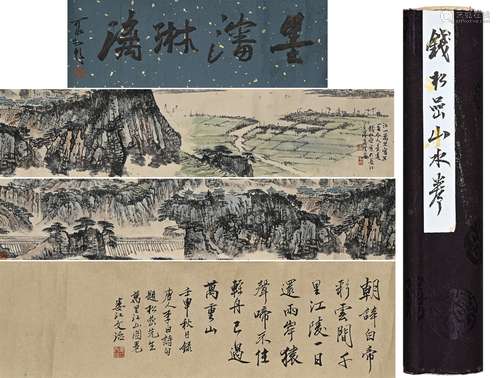 墨瀋淋漓
錢松嵒山水卷
朝辭白帝
彩雲間千
里江陵一日
還兩岸猿
聲啼不住
輕舟已過
萬重山
壬申秋日錄
唐人李白詩句
題松嵒先生
萬里江山圖卷
婁江文治